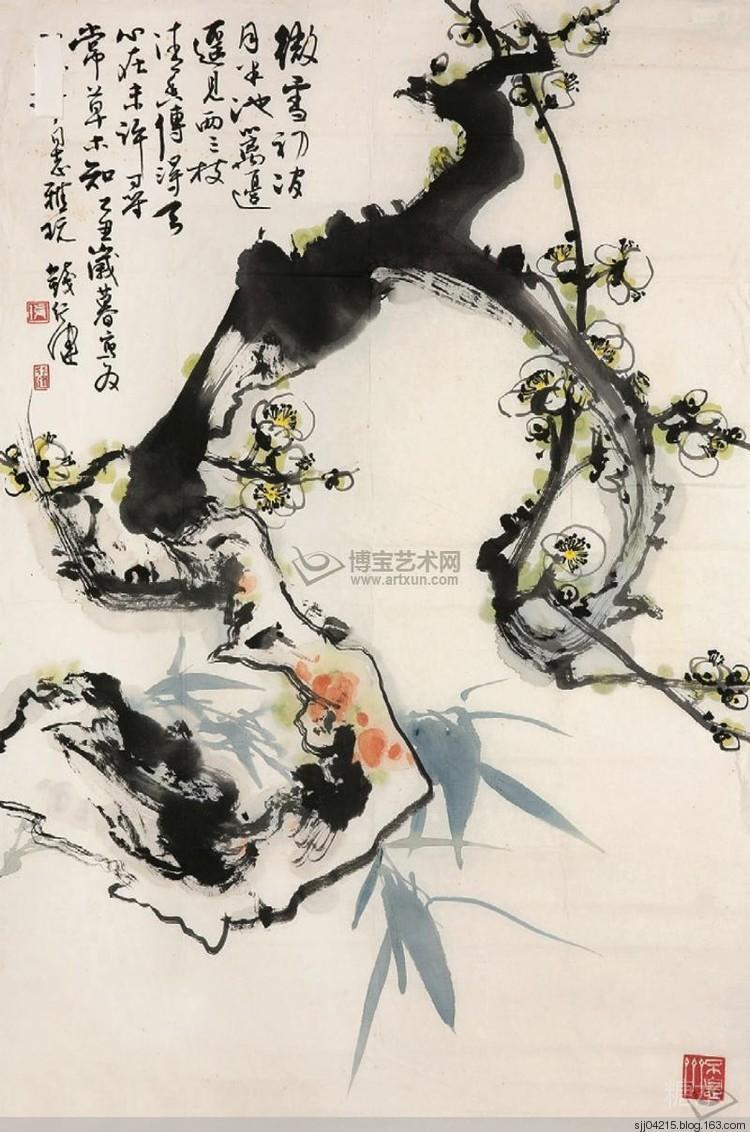 微雪初消
月半池篱邊
遥見两三枝
清香傳得天
心在未許尋
常草木知 乙丑歲暮寫为
同志雅玩 錢行健
博宝艺术网
www.artxun.com
sjj04215.blog.163.com